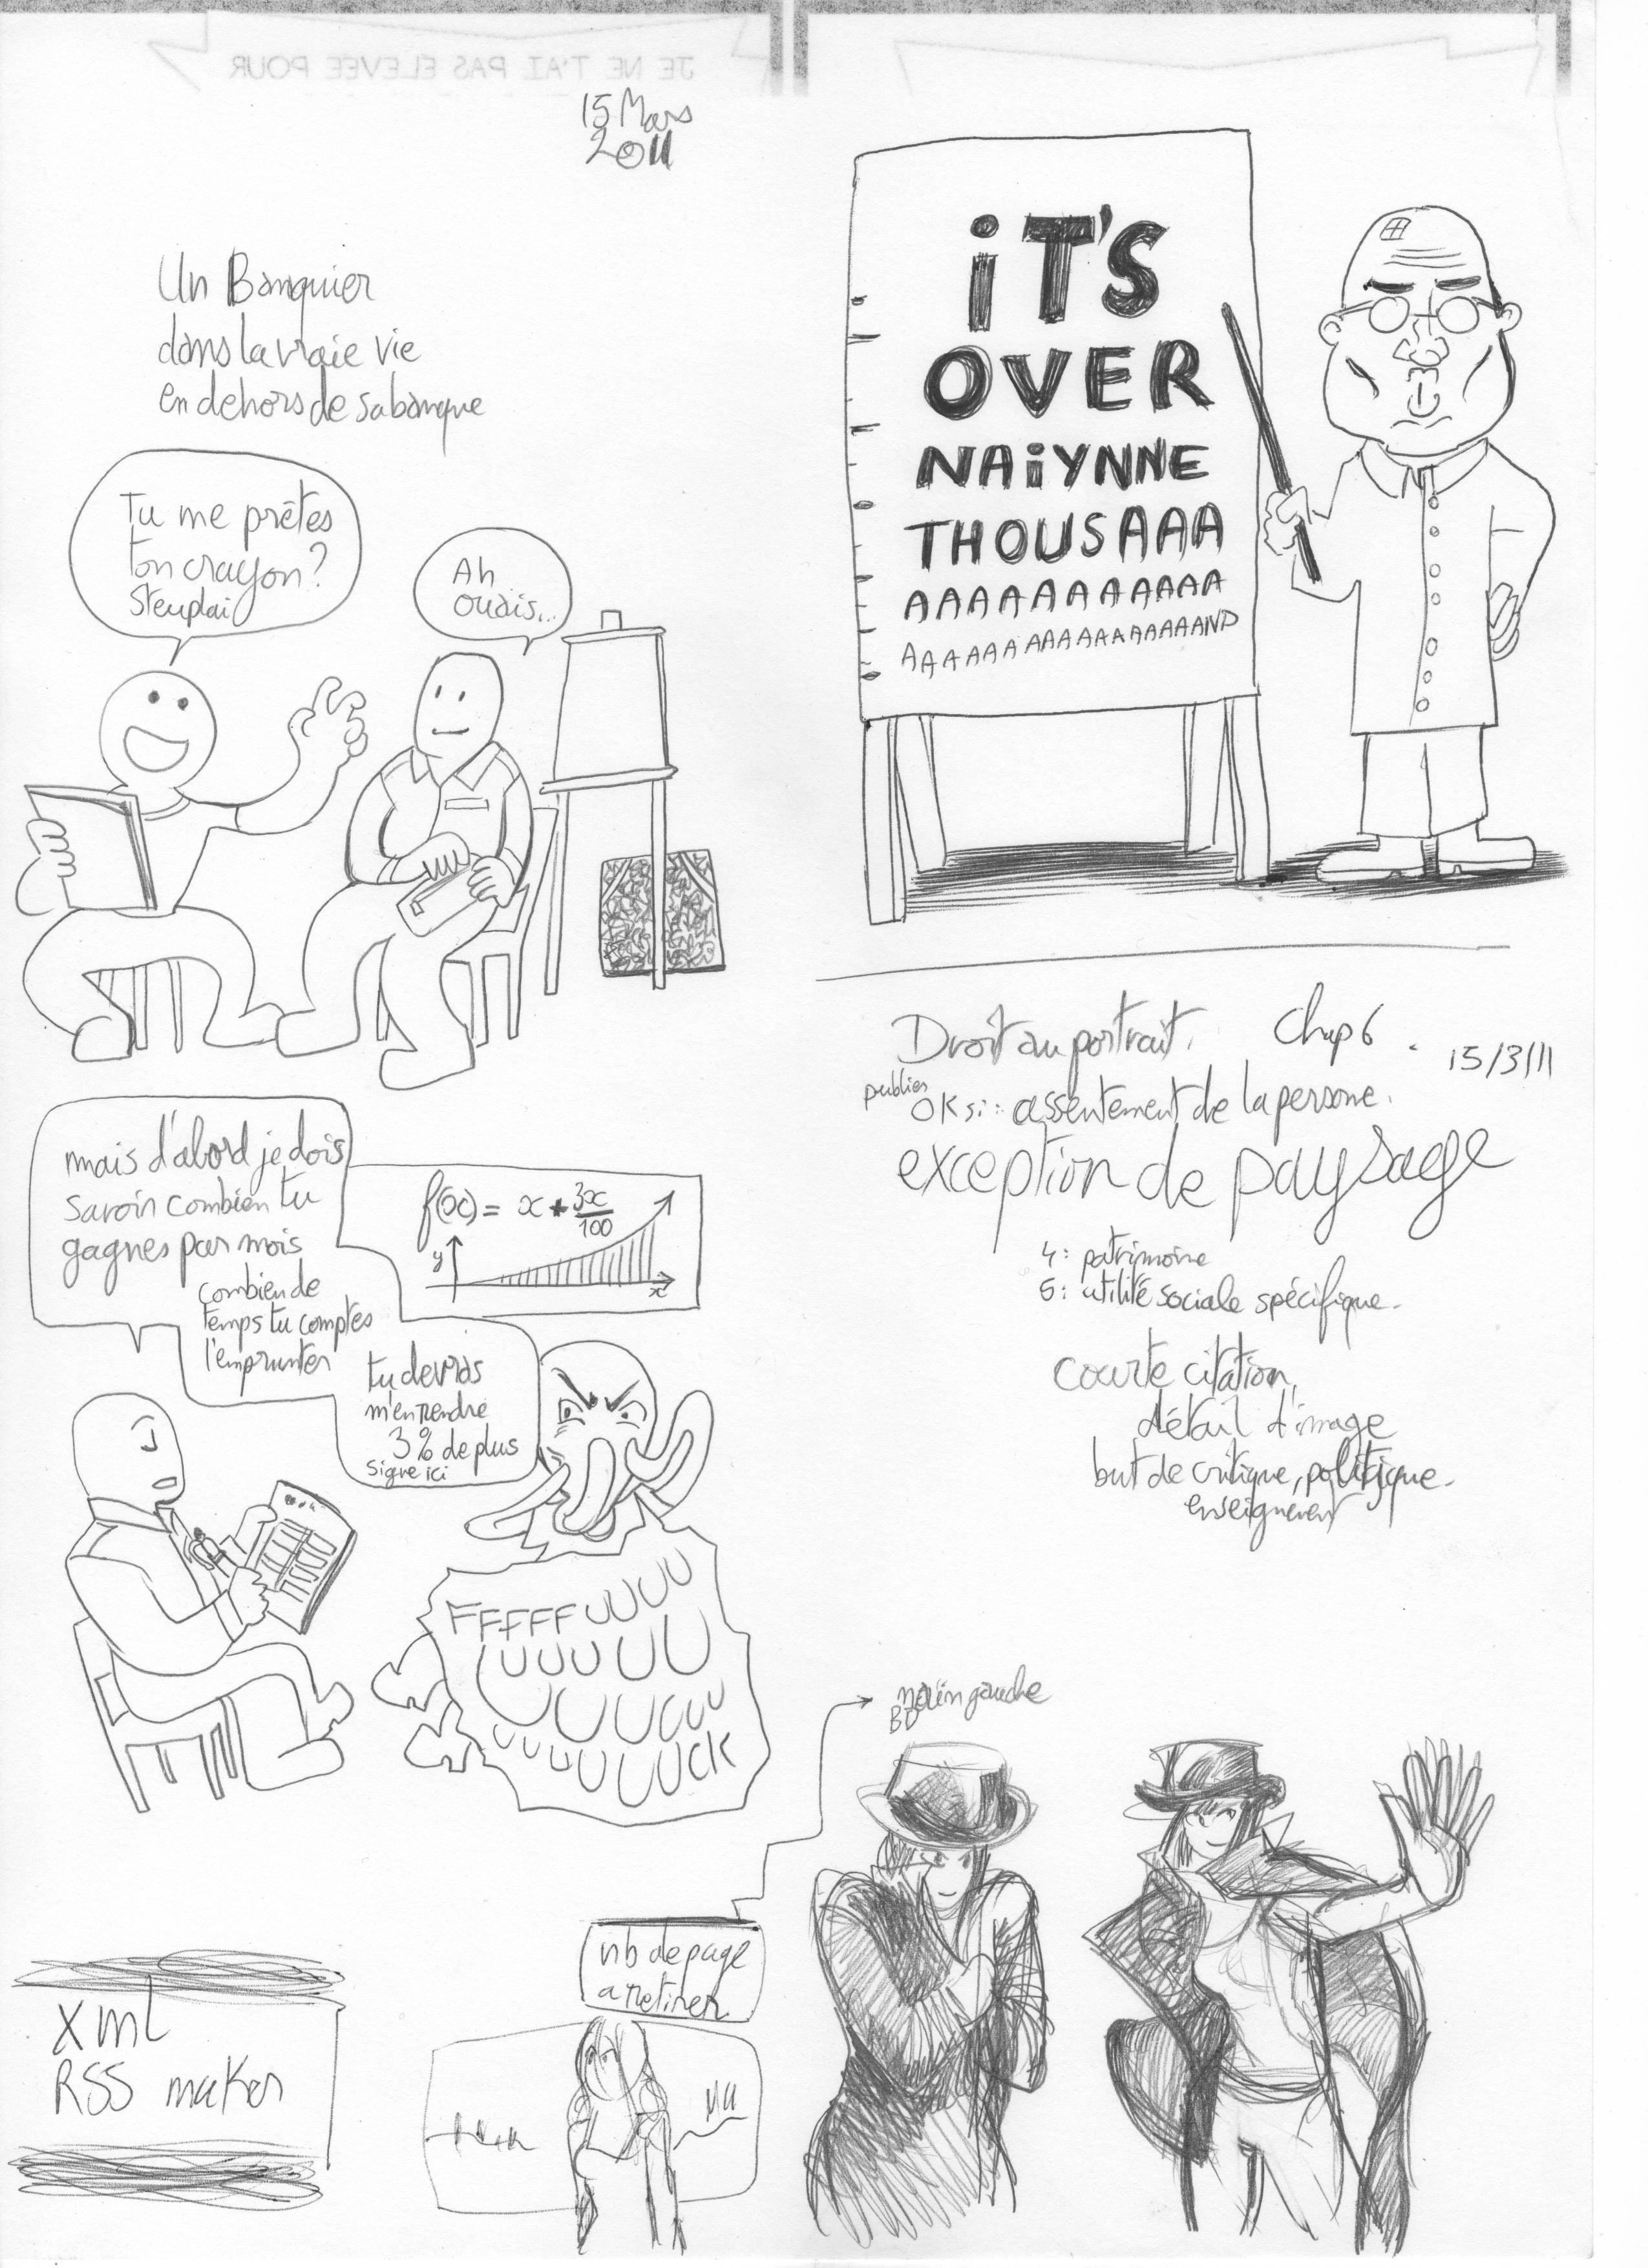 JE NE T'AI PAS ELEVEE POUR
15 Mars
2011
Un Banquier
dans la vraie vie
en dehors de sa banque
Tu me prêtes
ton crayon?
S'teuplai
Ah
ouais...
mais d'abord je dois
savoir combien tu
gagnes par mois
combien de
temps tu comptes
l'emprunter
tu devras
m'en rendre
3% de plus
signe ici
f(x) = x + 3x/100
y
x
FFFFFUUUU
UUUUUU
UUUUUU
UUUUUUUCK
xml
RSS maker
nb de page
a retirer
iT'S
OVER
NAiYNNE
THOUSAAA
AAAAAAAAAAA
AAAAAAAAAAAAAAAAAND
Droit au portrait. Chap 6. 15/3/11
publier
OK si: assentement de la persone.
exception de paysage
4: patrimoine
5: utilité sociale spécifique.
courte citation,
détail d'image
but de critique, politique.
main gauche
BD